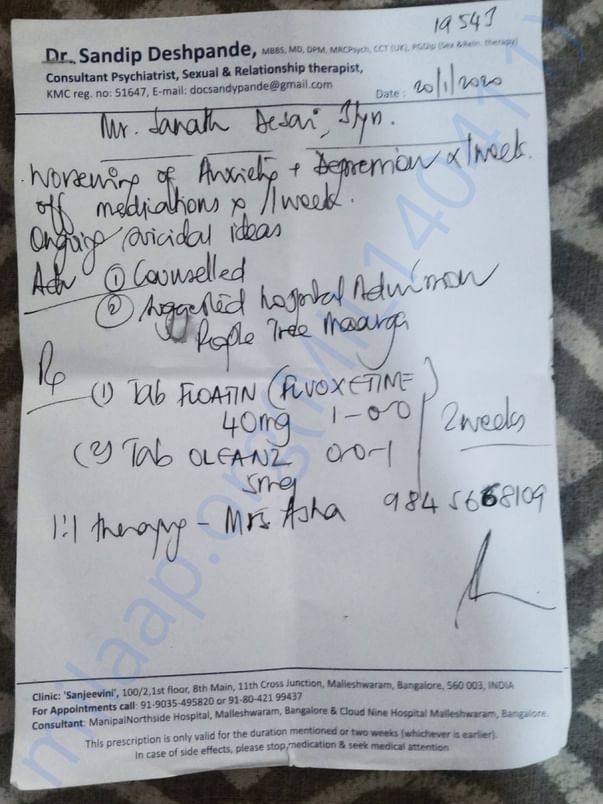 19541
Dr. Sandip Deshpande, MBBS, MD, DPM, MRCPsych, CCT (UK), PGDip (Sex &Reln. therapy)
Consultant Psychiatrist, Sexual & Relationship therapist,
KMC reg. no: 51647, E-mail: docsandypande@gmail.com
Date : 20/1/2020
Mr. Sanath Desai, 31yn.
Worsening of Anxiety + Depression x 1week.
off medications x 1week.
Ongoing suicidal ideas
Adv ① Counselled
② Suggested hospital Admission
People Tree Maarga
Rx
(1) Tab FLOATIN (FLUVOXETIME)
40mg 1-0-0
2weeks
(2) Tab OLEANZ 0-0-1
5mg
1:1 therapy - Mrs Asha 9845668109
Clinic: 'Sanjeevini', 100/2,1st floor, 8th Main, 11th Cross Junction, Malleshwaram, Bangalore, 560 003, INDIA
For Appointments call: 91-9035-495820 or 91-80-421 99437
Consultant: ManipalNorthside Hospital, Malleshwaram, Bangalore & Cloud Nine Hospital Malleshwaram, Bangalore.
This prescription is only valid for the duration mentioned or two weeks (whichever is earlier).
In case of side effects, please stop medication & seek medical attention
milaap.org(MIL140411)